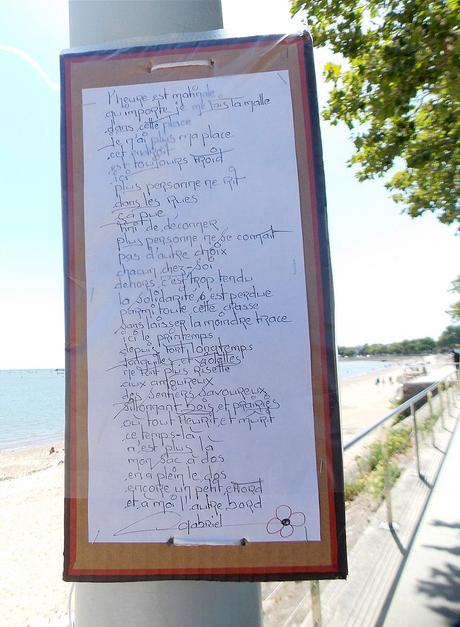 l'heure est matinale
qu'importe je me fais la malle
dans cette place
je n'ai plus ma place
cet endroit
est toujours froid
ici
plus personne ne rit
dans les rues
ça pue
fini de déconner
plus personne ne se connait
pas d'autre choix
chacun chez-soi
dehors, c'est trop tendu
la solidarité s'est perdue
parmi toute cette
sans laisser la moindre trace
ici le printemps
depuis fort longtemps
et violettes
ne font plus risette
aux amoureux
des sentiers savoureux
sillonant bois et prairies
où tout fleurit et murit
ce temps-là
n'est plus là
mon sac à dos
en a plein le dos
encore un petit
et à moi l'autre bord
Gabriel